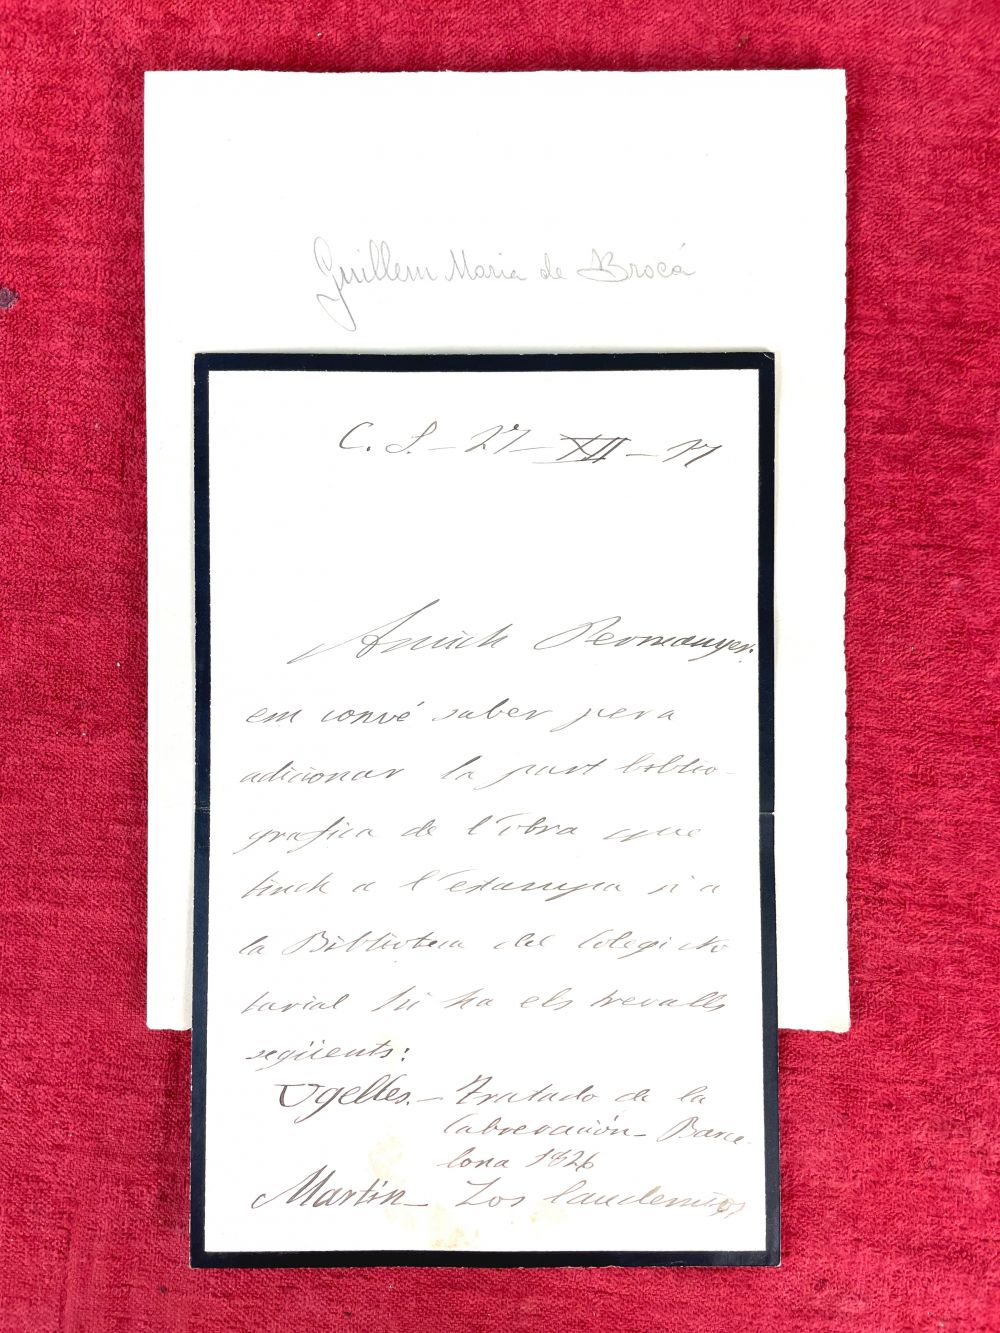 Guillem Maria de Brocá
C. S. – 27 – XII – 17
Amich Permanyer:
em convé saber pera
adicionar la part biblio-
grafica de l'obra que
tinch a l'estampa si a
la Biblioteca del Colegi No
tarial hi ha els trevalls
següents:
Ugelles. – Tratado de la
Cabrevación – Barce
lona 1826
Martín – Los laudemios